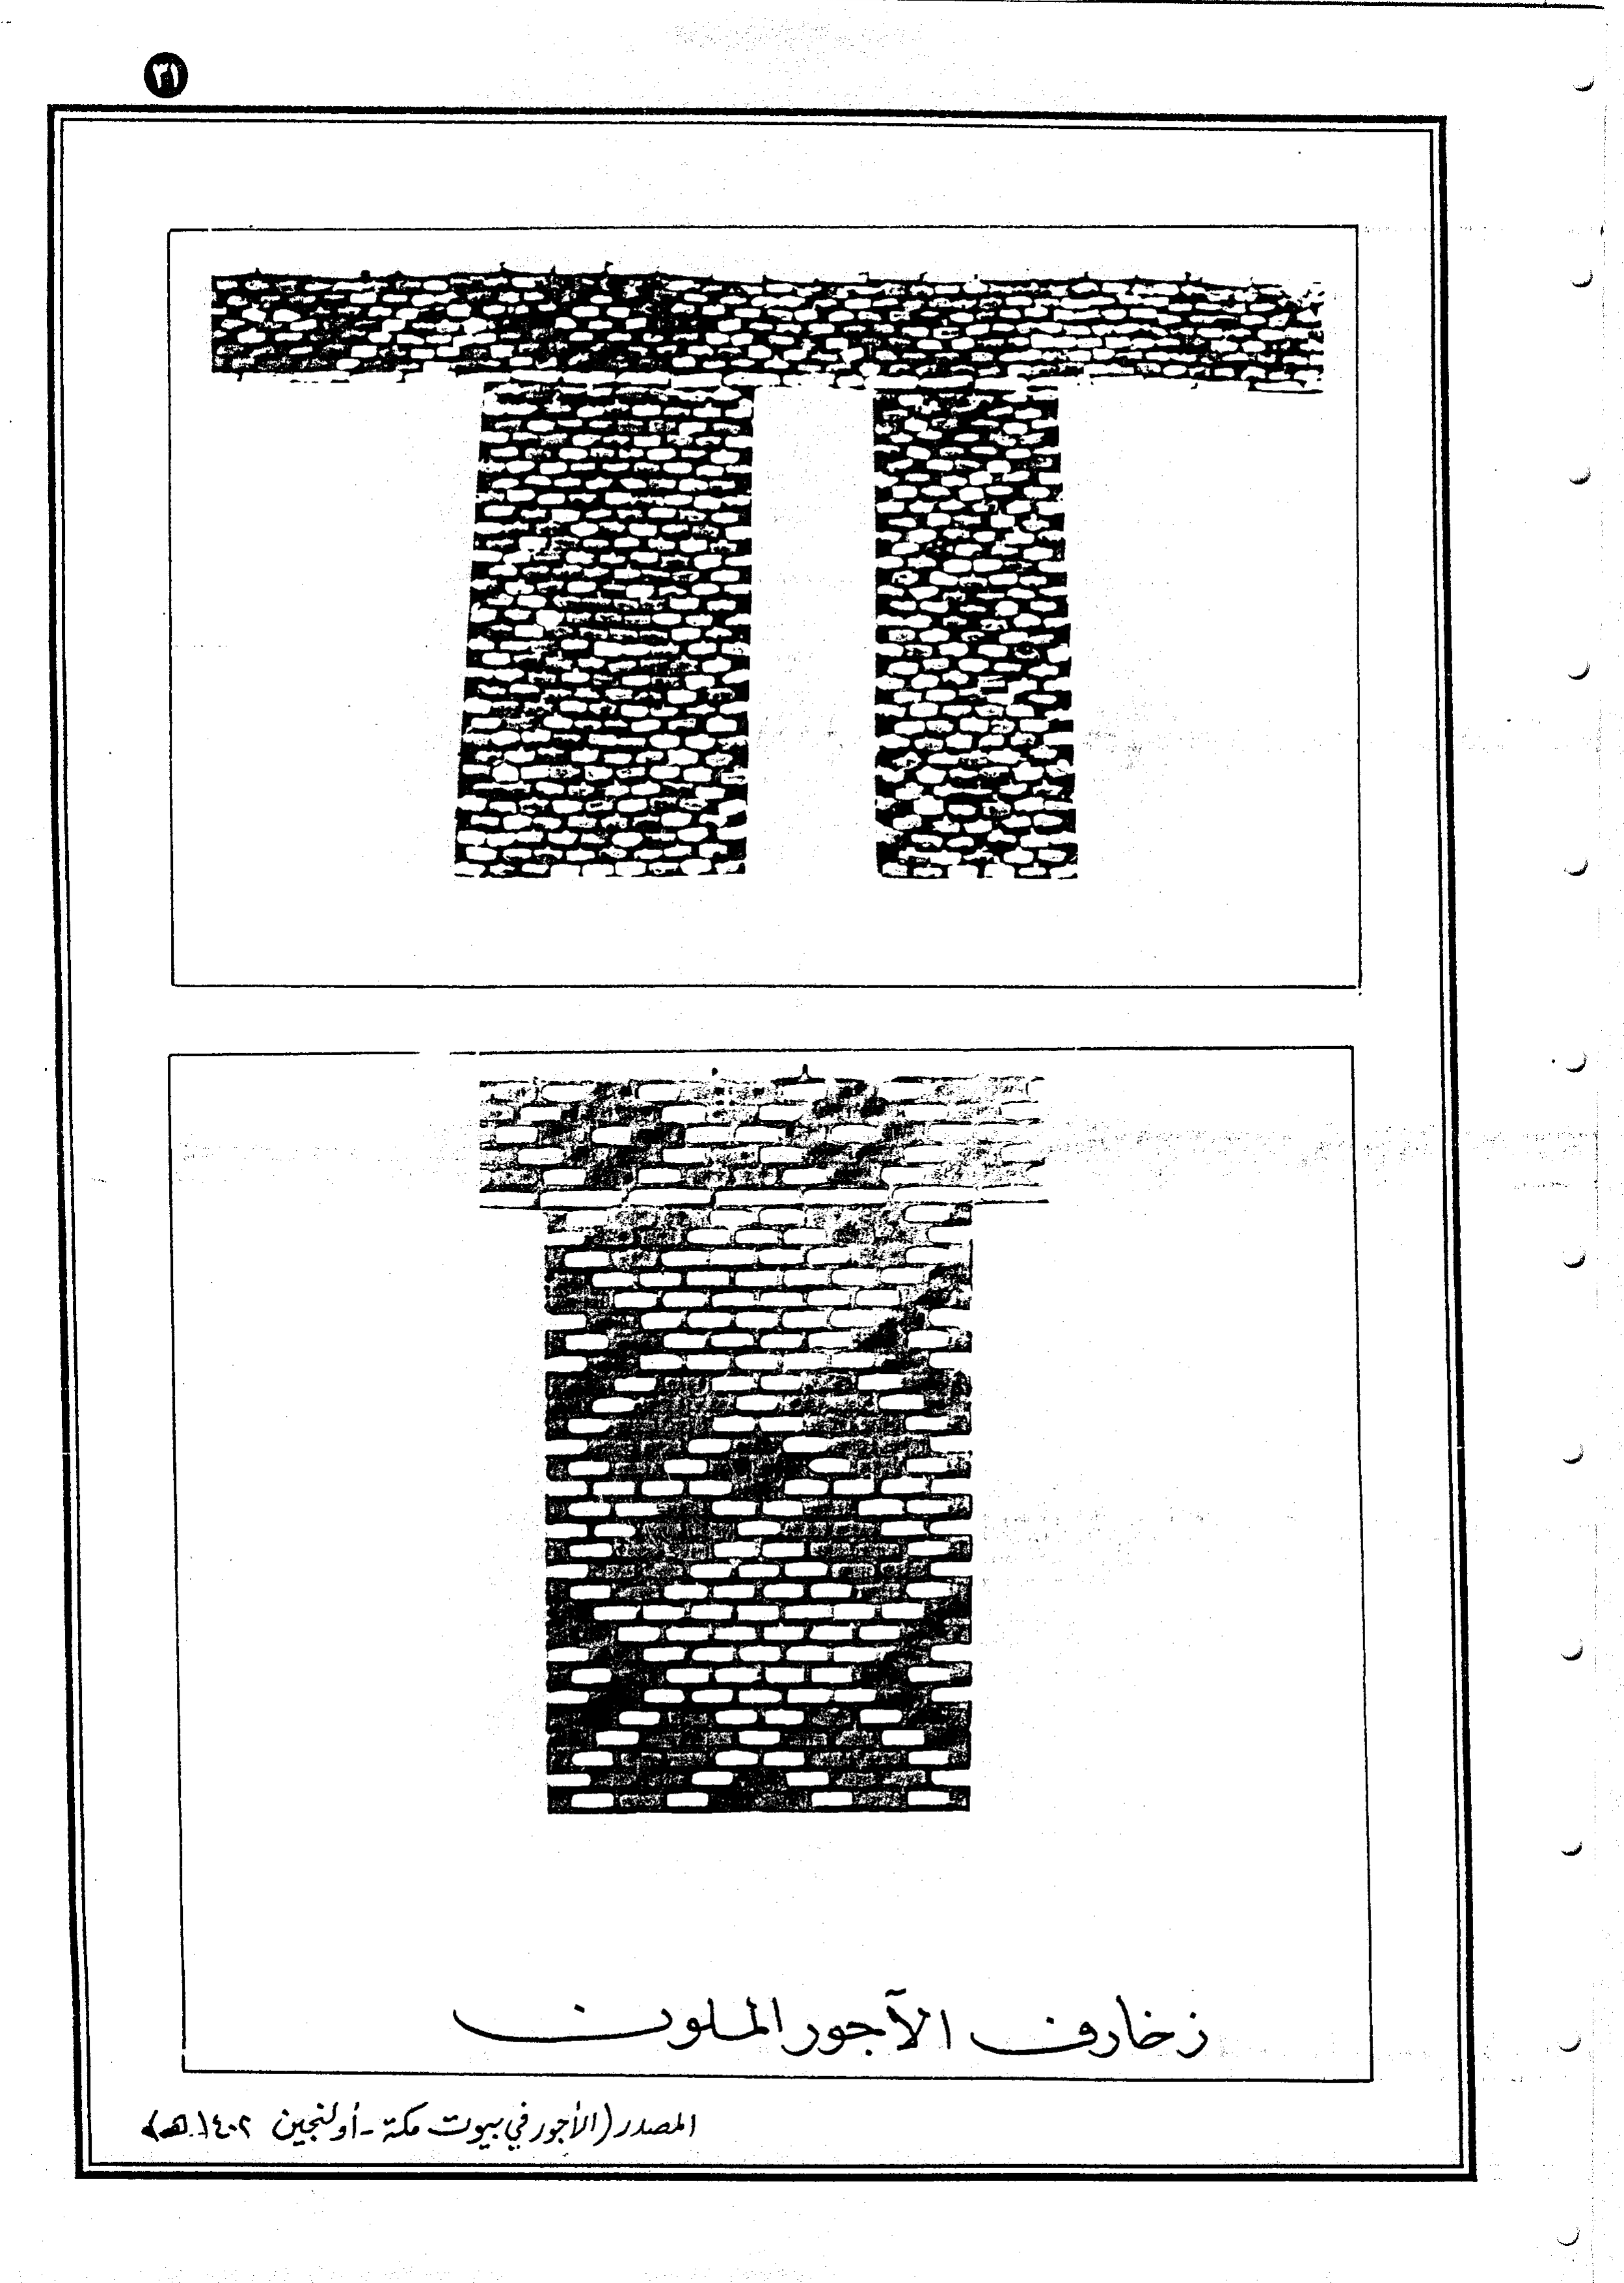 ٣١
زخارف الآجور الملون
المصدر (الأجور في بيوت مكة - أولنجين ١٤٠٢.هـ)